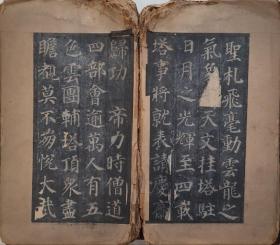 聖札飛毫動雲龍之
氣天文挂塔駐
日月之光輝至四載
塔事將就表請慶齋
歸功 帝力時僧道
四部會逾萬人有五
色雲團輔塔頂衆盡
瞻覩莫不崩悅大哉